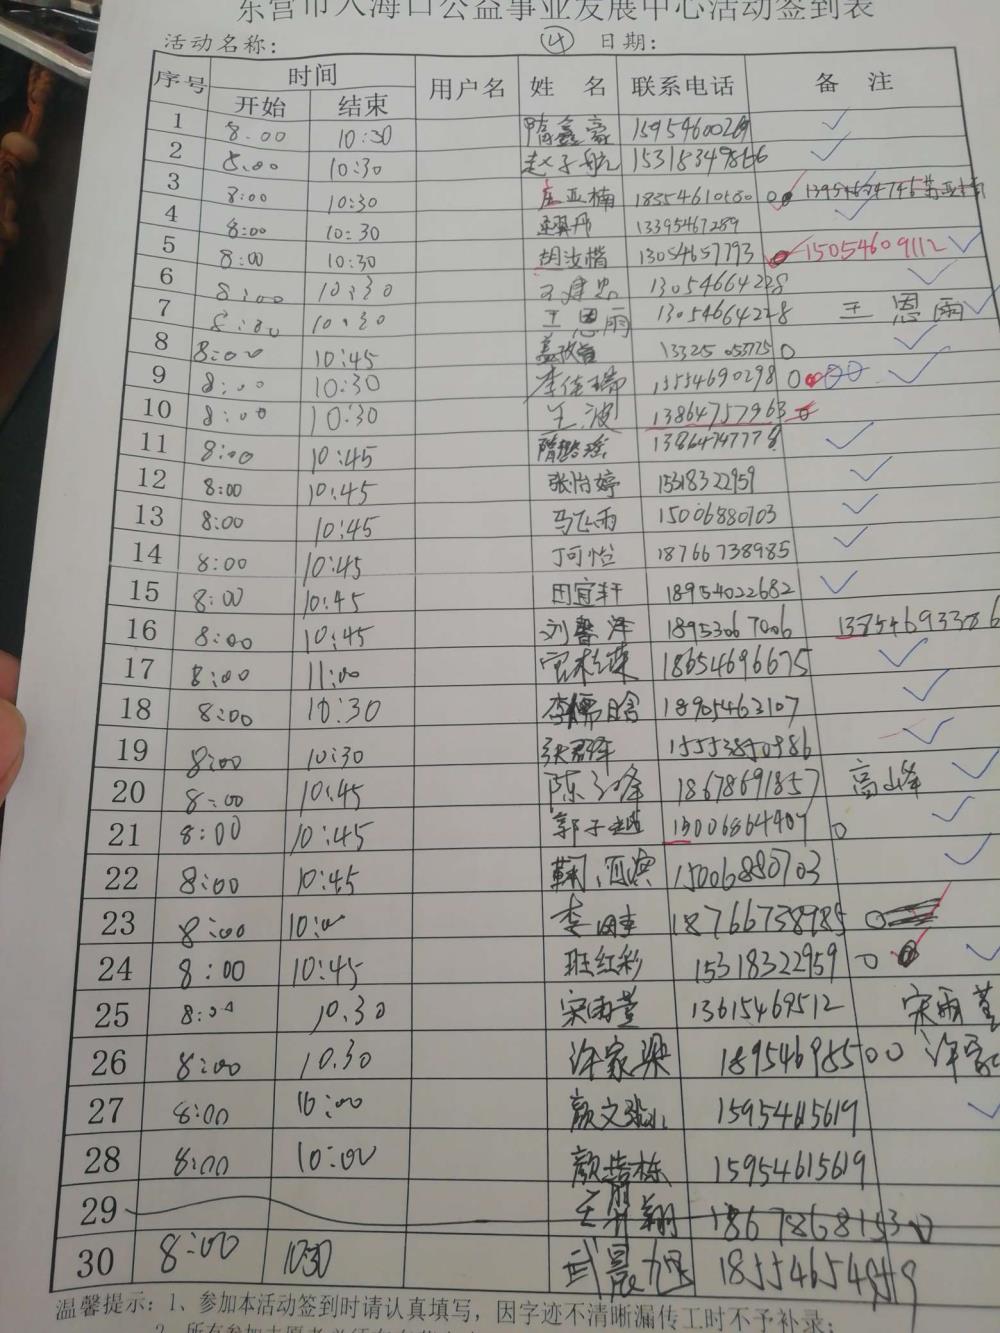 东营市入海口公益事业发展中心活动签到表
活动名称： ④ 日期：
序号 时间 用户名 姓 名 联系电话 备 注
开始 结束
1 8:00 10:30 隋鑫豪
2 8:00 10:30 赵子航 15318349866
3 8:00 10:30 庄亚楠 13954674746
4 8:00 10:30 13395467289
5 8:00 10:30 胡汝楷 13054657793 15054609112
6 8:00 10:30 王建忠 13054664228
7 8:00 10:30 王恩雨 13054664228 王恩雨
8 8:00 10:45 13325053775
9 8:00 10:30 李佳瑞 15554690298
10 8:00 10:30 王波 13864757963
11 8:00 10:45 13864747778
12 8:00 10:45 张怡婷 15318322959
13 8:00 10:45 马飞雨 15006880703
14 8:00 10:45 丁可怡 18766738985
15 8:00 10:45 田宜轩 18954022682
16 8:00 10:45 刘馨泽 18953067006 13854693386
17 8:00 11:00 18654696675
18 8:00 10:30 18905462107
19 8:00 10:30 15553850986
20 8:00 10:45 18678691857 高峰
21 8:00 10:45 15006864407
22 8:00 10:45 15006880703
23 8:00 10:00 18766738985
24 8:00 10:45 班红彩 15318322959
25 8:00 10.30 宋雨萱 13615469512 宋雨萱
26 8:00 10.30 许家梁 18954698500 许家
27 8:00 10:00 15954615619
28 8:00 10:00 颜浩栋 15954615619
29
30 8:00 1030 武晨旭
温馨提示：1、参加本活动签到时请认真填写，因字迹不清晰漏传工时不予补录；